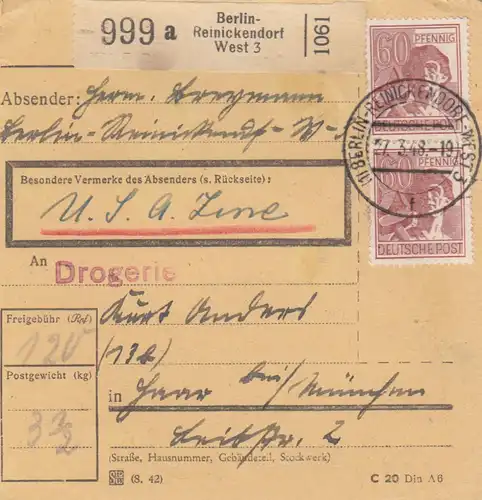 999 a
Berlin-
Reinickendorf
West 3
1061
60 PFENNIG
DEUTSCHE POST
60 PFENNIG
DEUTSCHE POST
(1) BERLIN-REINICKENDORF-WEST 3
27.3.48.-19
f
Absender: Herm. Bregmann
Berlin-Reinickend-W-
Besondere Vermerke des Absenders (s. Rückseite):
U. S. A. Zone
An
Drogerie
Kurt Anders
(13b)
in Haar bei/München
Leibstr. 2
(Straße, Hausnummer, Gebäudeteil, Stockwerk)
Freigebühr (Rpf)
120
Postgewicht (kg)
3 1/2
(S. 42)
C 20 Din A6